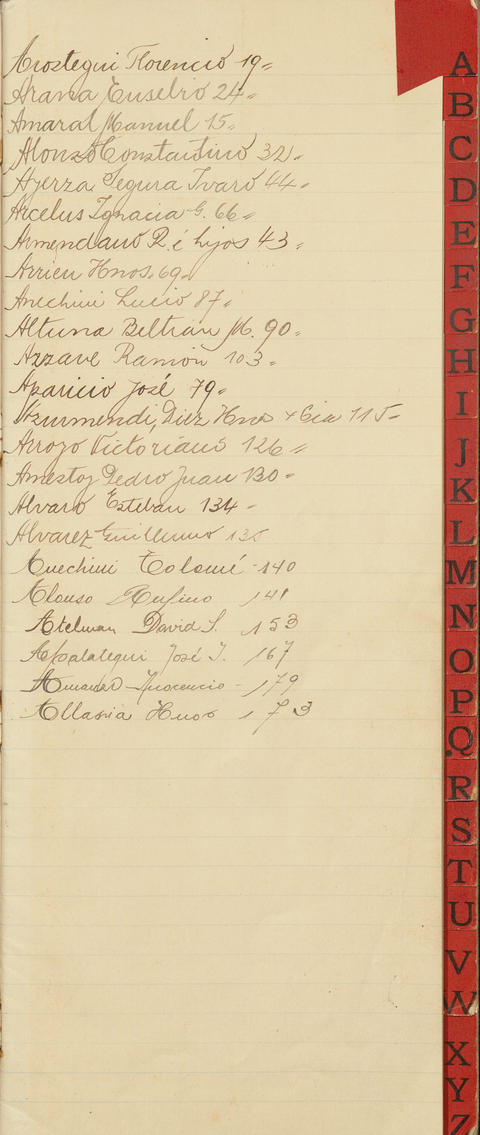 Arostegui Florencio 19„
Arana Eusebio 24„
Amaral Manuel 15„
Alonzo Constantino 32„
Ayerza Segura Ivaro 44„
Arcelus Ignacia G. 66„
Armendano R. é hijos 43„
Arrieu Hnos. 69„
Anechini Lucio 87„
Altuna Beltrán M. 90„
Azzave Ramón 103„
Aparicio José 79„
Diez Hnos + Cia 115„
Arroyo Victoriano 126„
Amestoy Pedro Juan 130„
Alvaro Esteban 134„
Alvarez Guillermo 135
Anechini Tolomé 140
Alonso Rufino 141
Atelman David S. 153
José I. 167
Inocencio 179
Allaria Hnos 173
A
B
C
D
E
F
G
H
I
J
K
L
M
N
O
P
Q
R
S
T
U
V
W
X
Y
Z